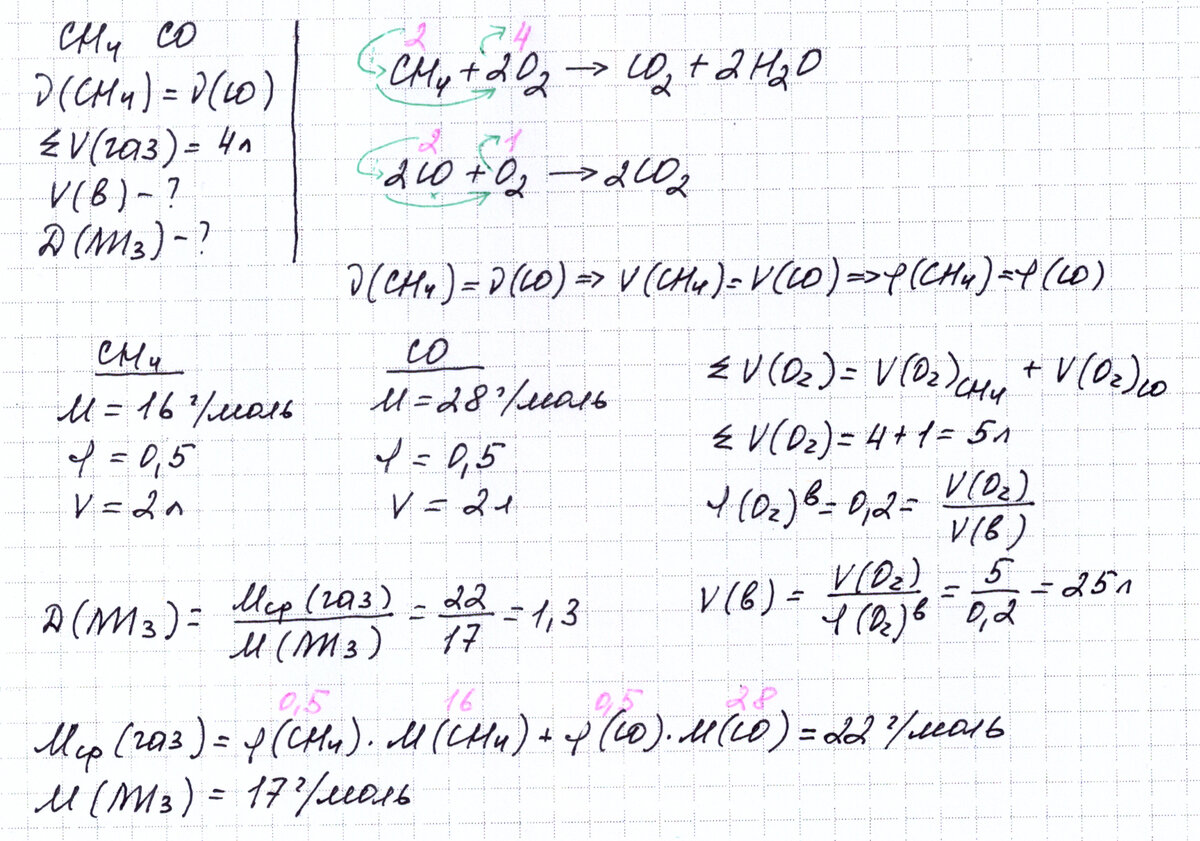 CH₄ CO
ν(CH₄) = ν(CO)
ΣV(газ) = 4л
V(в) - ?
D(NH₃) - ?
2 4
CH₄ + 2O₂ → CO₂ + 2H₂O
2 1
2CO + O₂ → 2CO₂
ν(CH₄) = ν(CO) ⇒ V(CH₄) = V(CO) ⇒ φ(CH₄) = φ(CO)
CH₄
M = 16 г/моль
φ = 0,5
V = 2л
CO
M = 28 г/моль
φ = 0,5
V = 2л
ΣV(O₂) = V(O₂)CH₄ + V(O₂)CO
ΣV(O₂) = 4 + 1 = 5л
φ(O₂)ᴮ = 0,2 = V(O₂) / V(в)
V(в) = V(O₂) / φ(O₂)ᴮ = 5 / 0,2 = 25л
D(NH₃) = Mср(газ) / M(NH₃) = 22 / 17 = 1,3
0,5 16 0,5 28
Mср(газ) = φ(CH₄) · M(CH₄) + φ(CO) · M(CO) = 22 г/моль
M(NH₃) = 17 г/моль